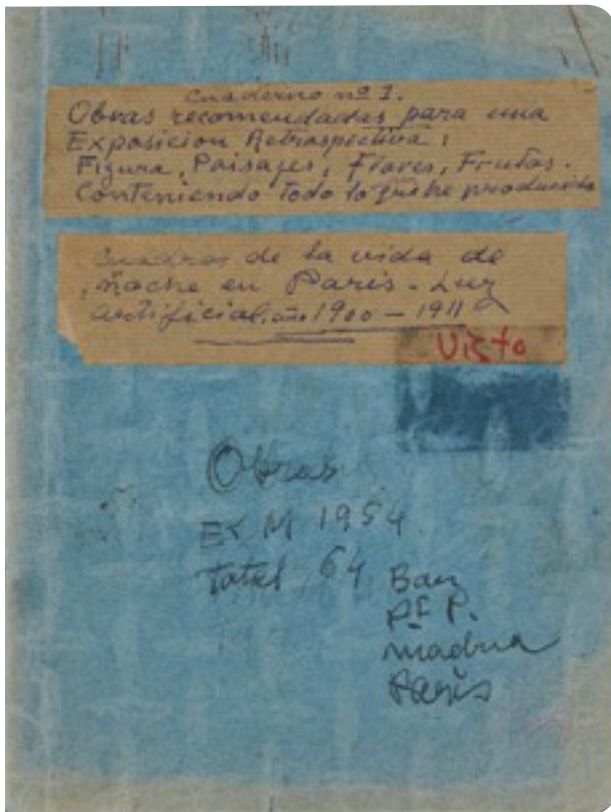 Cuaderno nº 1.
Obras recomendadas para una
Exposicion Retrospectiva:
Figura, Paisajes, Flores, Frutas.
Conteniendo todo lo que he producido
Cuadros de la vida de
noche en Paris - Luz
artificial. año 1900 - 1911
Visto
Obras
M 1954.
total 64
P.
Paris